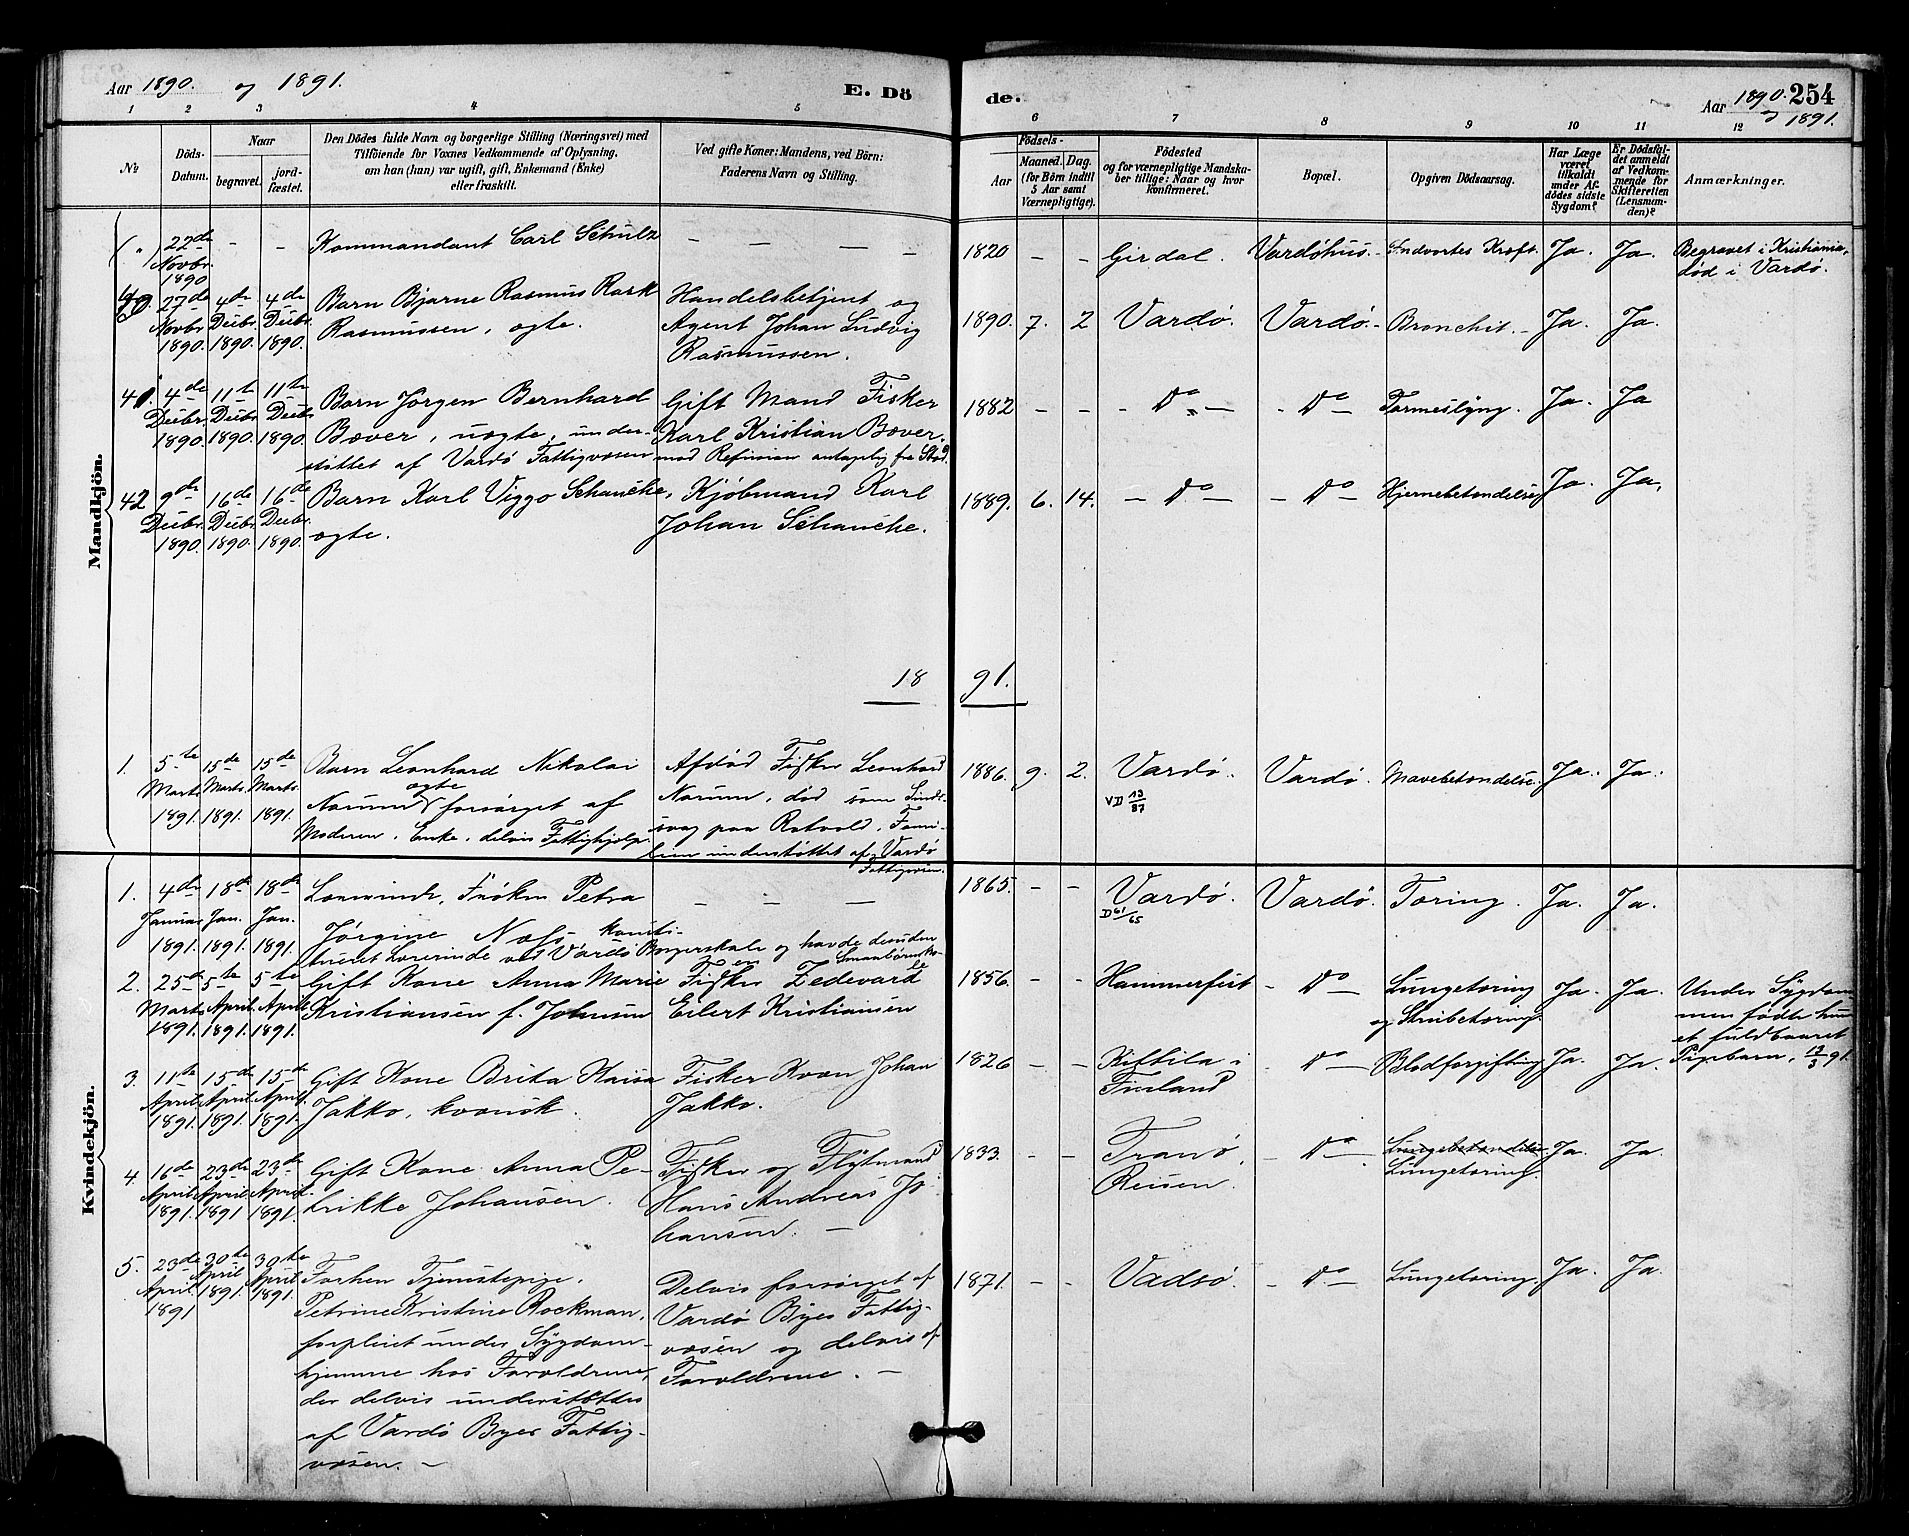 Aar 1890. og 1891.
E. Dö
de.
Aar 1890. og 1891. 254
1 2 3 4 5
6 7 8 9 10 11 12
No
Döds-Datum.
Naar
begravet.
jord-fæstet.
Den Dödes fulde Navn og borgerlige Stilling (Næringsvei) med
Tilföiende for Voxnes Vedkommende af Oplysning,
om han (hun) var ugift, gift, Enkemand (Enke)
eller fraskilt.
Ved gifte Koner: Mandens, ved Börn:
Faderens Navn og Stilling.
Födsels-
Aar
Maaned. Dag.
(for Börn indtil
5 Aar samt
Værnepligtige).
Födested
og for værnepligtige Mandska-
ber tillige: Naar og hvor
konfirmeret.
Bopæl.
Opgiven Dödsaarsag.
Har Læge
været
tilkaldt
under Af-
dödes sidste
Sygdom?
Er Dödsfal-
det anmeldt
af Vedkom-
mende for
Skifteretten
(Lensman-
den)?
Anmærkninger.
Mandkjön.
(") 22de Novbr. 1890 - - Kommandant Carl Schulz - - - -
1820 - - Girdal. Vardöhus. - Indvortes Kræft. Ja. Ja. Begravet i Kristiania,
död i Vardö.
40. 27de Novbr. 1890. 4de Decbr. 1890. 4de Decbr. 1890. Barn Bjarne Rasmus Rask
Rasmussen, ægte.
Handelsbetjent og
Agent Johan Ludvig
Rasmussen.
1890. 7. 2 Vardö. Vardö. - Bronchit. - Ja. Ja.
41. 4de Decbr. 1890. 11te Decbr. 1890. 11te Decbr. 1890. Barn Jörgen Bernhard
Bæver, uægte, under-
stöttet af Vardö Fattigvæsen
Gift Mand Fisker
Karl Kristian Bæver.
1882 - - - Do - - Do - Tarmeslyng. Ja. Ja
42 9de Decbr. 1890. 16de Decbr. 1890. 16de Decbr. 1890. Barn Karl Viggo Schanche,
ægte.
Kjöbmand Karl
Johan Schanche.
1889. 6. 14. - Do - - Do - Hjernebetændelse Ja. Ja.
18 91.
1. 5te Marts 1891. 15de Marts. 1891. 15de Marts. 1891. Barn Leonhard Nikolai
Norum ægte forsörget af
Moderen, Enke, delvis Fattighjelp.
Afdöd Fisker Leonhard
Norum, död som Sinds-
svag paa Rotvold. Fami-
lien understöttet af Vardö
Fattigvæsen.
1886. 9. 2. Vardö. Vardö. Mavebetændelse. Ja. Ja.
VD 13/87
Kvindekjön.
1. 4de Januar 1891. 18de Jan. 1891. 18de Jan. 1891. Lærerinde, Fröken Petra
Jörgine Næss, konsti-
tueret Lærerinde ved Vardö Borgerskole og havde desuden
en Smaabörnsko-
le
- - -
1865. - - Vardö. Vardö. Tæring. Ja. Ja.
D 61/65
2. 25de Marts 1891. 5te April 1891. 5te April 1891. Gift Kone Anna Marie
Kristiansen f. Johnsen
Fisker Zedevard
Eilert Kristiansen
1856. - - Hammerfest - Do - Lungetæring
og Strubetæring. Ja. Ja. Under Sygdom-
men födte hun
et fuldbaaret
Pigebarn, 17/3 91.
3. 11te April 1891. 15de April 1891. 15de April 1891. Gift Kone Brita Kaisa
Jakko, kvænsk.
Fisker Kvæn Johan
Jakko.
1826 - - Kittila i
Finland - Do - Blodforgiftning Ja. Ja.
4. 16de April 1891. 23de April 1891 23de April 1891. Gift Kone Anna Pe-
trikke Johansen.
Fisker og Flytmand
Hans Andreas Jo-
hansen. -
1833. - - Tranö,
Reisen. - Do - Lungebetændelse
Lungetæring. Ja. Ja.
5. 23de April 1891 30te April 1891. 30te April 1891. Forhen Tjenestepige,
Petrine Kristine Rockman,
forpleiet under Sygdom-
hjemme hos Forældrene,
der delvis understöttes
af Vardö Byes Fattig-
væsen. -
Delvis forsörget af
Vardö Byes Fattig-
væsen og delvis af
Forældrene. -
1871. - - Vadsö. - Do - Lungetæring. Ja. Ja.